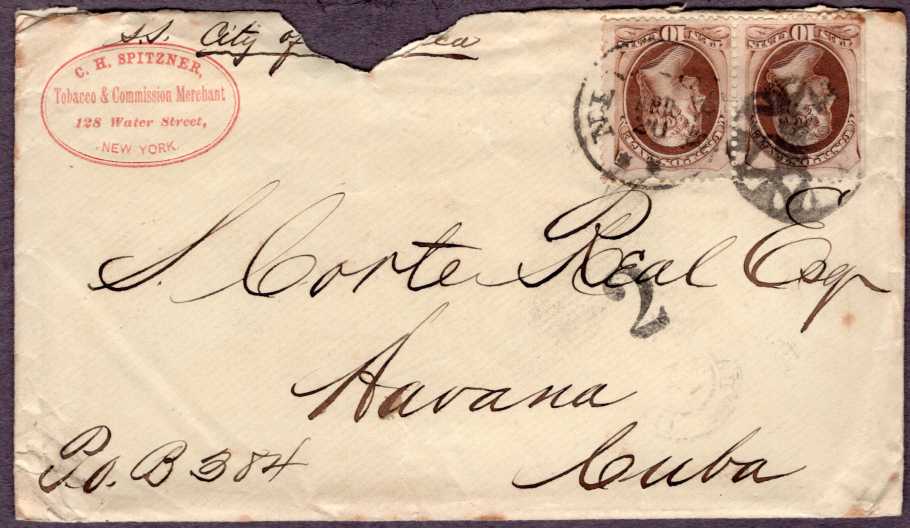 S.S. City of
C. H. SPITZNER,
Tobacco & Commission Merchant
128 Water Street,
NEW YORK.
10 10
FEB
20
S. Corte Real Esq
2
Havana
P.O. B 384
Cuba